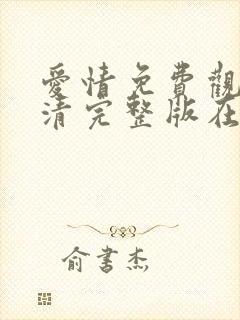 愛情免費觀
清完整版在
俞書杰